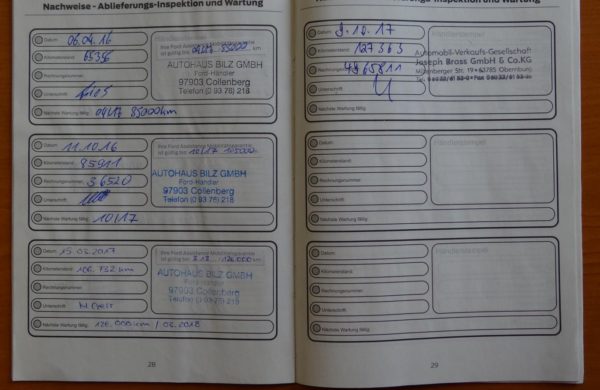 Nachweise - Ablieferungs-Inspektion und Wartung
Datum: 06.04.16
Kilometerstand: 65356
Rechnungsnummer:
Unterschrift:
Nächste Wartung fällig: 04/17 85000km
Ihre Ford Assistance Mobilitätsgarantie
ist gültig bis: 04/17 85000 km
AUTOHAUS BILZ GMBH
Ford-Händler
97903 Collenberg
Telefon (0 93 76) 218
Datum: 11.10.16
Kilometerstand: 85911
Rechnungsnummer: 36520
Unterschrift:
Nächste Wartung fällig: 10/17
Ihre Ford Assistance Mobilitätsgarantie
ist gültig bis: 10/17 105000km
AUTOHAUS BILZ GMBH
Ford-Händler
97903 Collenberg
Telefon (0 93 76) 218
Datum: 15.03.2017
Kilometerstand: 106.732 km
Rechnungsnummer:
Unterschrift:
Nächste Wartung fällig: 126.000km / 03.2018
Ihre Ford Assistance Mobilitätsgarantie
ist gültig bis: 3.18 126.000 km
AUTOHAUS BILZ GMBH
Ford-Händler
97903 Collenberg
Telefon (0 93 76) 218
28
Inspektion und Wartung
Datum: 9.10.17
Kilometerstand: 127363
Rechnungsnummer: 4865811
Unterschrift:
Nächste Wartung fällig:
Händlerstempel
Automobil-Verkaufs-Gesellschaft
Joseph Brass GmbH & Co.KG
Miltenberger Str. 63785 Obernburg
Datum:
Kilometerstand:
Rechnungsnummer:
Unterschrift:
Nächste Wartung fällig:
Händlerstempel
Datum:
Kilometerstand:
Rechnungsnummer:
Unterschrift:
Nächste Wartung fällig:
Händlerstempel
29